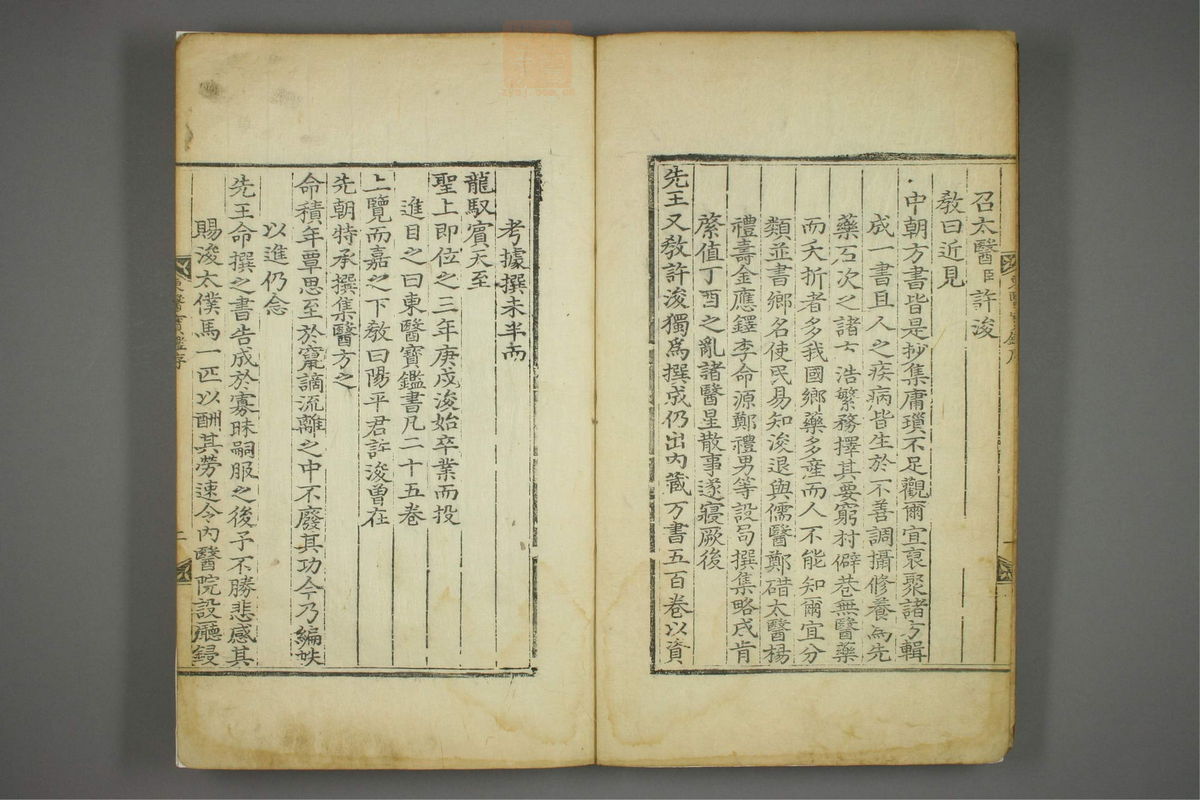 召太醫臣許浚
敎曰近見
中朝方書皆是抄集庸瑣不足觀爾宜裒聚諸方輯
成一書且人之疾病皆生於不善調攝修養爲先
藥石次之諸方浩繁務擇其要窮村僻巷無醫藥
而夭折者多我國鄉藥多産而人不能知爾宜分
類並書鄉名使民易知浚退與儒醫鄭碏太醫楊
禮壽金應鐸李命源鄭禮男等設局撰集略成肯
綮値丁酉之亂諸醫星散事遂寢厥後
先王又敎許浚獨爲撰成仍出內藏方書五百卷以資
考據撰未半而
龍馭賓天至
聖上即位之三年庚戌浚始卒業而投
進目之曰東醫寶鑑書凡二十五卷
上覽而嘉之下敎曰陽平君許浚曾在
先朝特承撰集醫方之
命積年覃思至於竄謫流離之中不廢其功今乃編帙
以進仍念
先王命撰之書告成於寡昧嗣服之後予不勝悲感其
賜浚太僕馬一匹以酬其勞速令內醫院設廳鋟
東醫寶鑑序
二